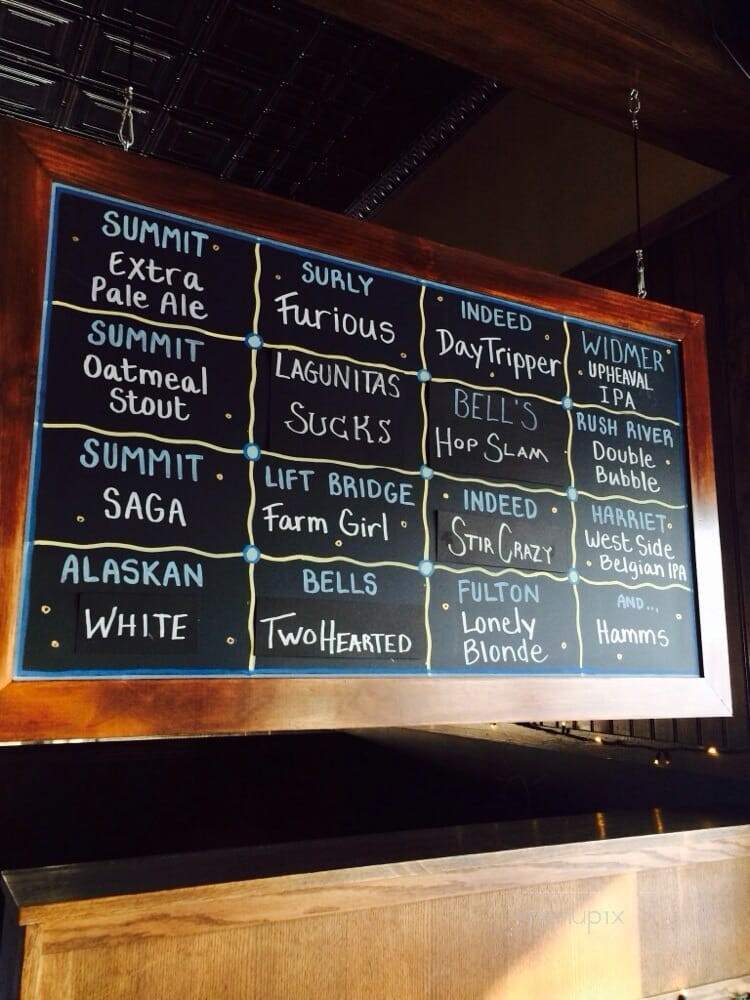 SUMMIT
Extra
Pale Ale
SURLY
Furious
INDEED
DayTripper
WIDMER
UPHEAVAL
IPA
SUMMIT
Oatmeal
Stout
LAGUNITAS
SUCKS
BELL'S
HOP SLAM
RUSH RIVER
Double
Bubble
SUMMIT
SAGA
LIFT BRIDGE
Farm Girl
INDEED
STIR CRAZY
HARRIET
West Side
Belgian IPA
ALASKAN
WHITE
BELLS
TWO HEARTED
FULTON
Lonely
Blonde
AND...
Hamms